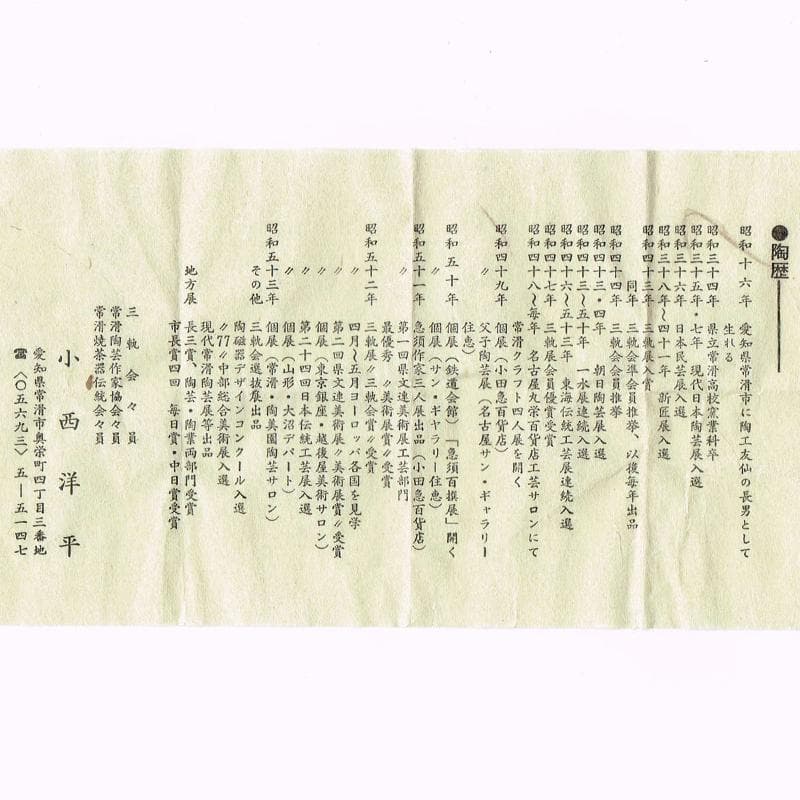 ●陶歴
昭和十六年 愛知県常滑市に陶工友仙の長男として
生れる
昭和三十四年 県立常滑高校窯業科卒
昭和三十五年・七年 現代日本陶芸展入選
昭和三十六年 日本民芸展入選
昭和三十八年〜四十一年 新匠展入選
昭和四十三年 三軌展入賞
同年 三軌会準会員推挙、以後毎年出品
昭和四十四年 三軌会会員推挙
昭和四十三・四年 朝日陶芸展入選
昭和四十三〜五十年 一水展連続入選
昭和四十六〜五十三年 東海伝統工芸展連続入選
昭和四十七年 三軌展会員優賞受賞
昭和四十八〜毎年 名古屋丸栄百貨店工芸サロンにて
常滑クラフト四人展を開く
昭和四十九年 個展(小田急百貨店)
〃 父子陶芸展(名古屋サン・ギャラリー
住恵)
昭和五十年 個展(鉄道会館)「急須百撰展」開く
〃 個展(サン・ギャラリー住恵)
昭和五十一年 急須作家三人展出品(小田急百貨店)
〃 第一回県文連美術展工芸部門
最優秀〃美術展賞〃受賞
昭和五十二年 三軌展〃三軌会賞〃受賞
〃 四月〜五月ヨーロッパ各国を見学
〃 第二回県文連美術展〃美術展賞〃受賞
〃 個展(東京銀座・越後屋美術サロン)
〃 第二十四回日本伝統工芸展入選
〃 個展(山形・大沼デパート)
昭和五十三年 個展(常滑・陶美園陶芸サロン)
その他 三軌会選抜展出品
陶磁器デザインコンクール入選
〃77〃中部総合美術展入選
現代常滑陶芸展等出品
地方展 長三賞、陶芸・陶業両部門受賞
市長賞四回 毎日賞・中日賞受賞
三軌会々員
常滑陶芸作家協会々員
常滑焼茶器伝統会々員
小西洋平
愛知県常滑市奥栄町四丁目三番地
☎〈〇五六九三〉五―五一四七